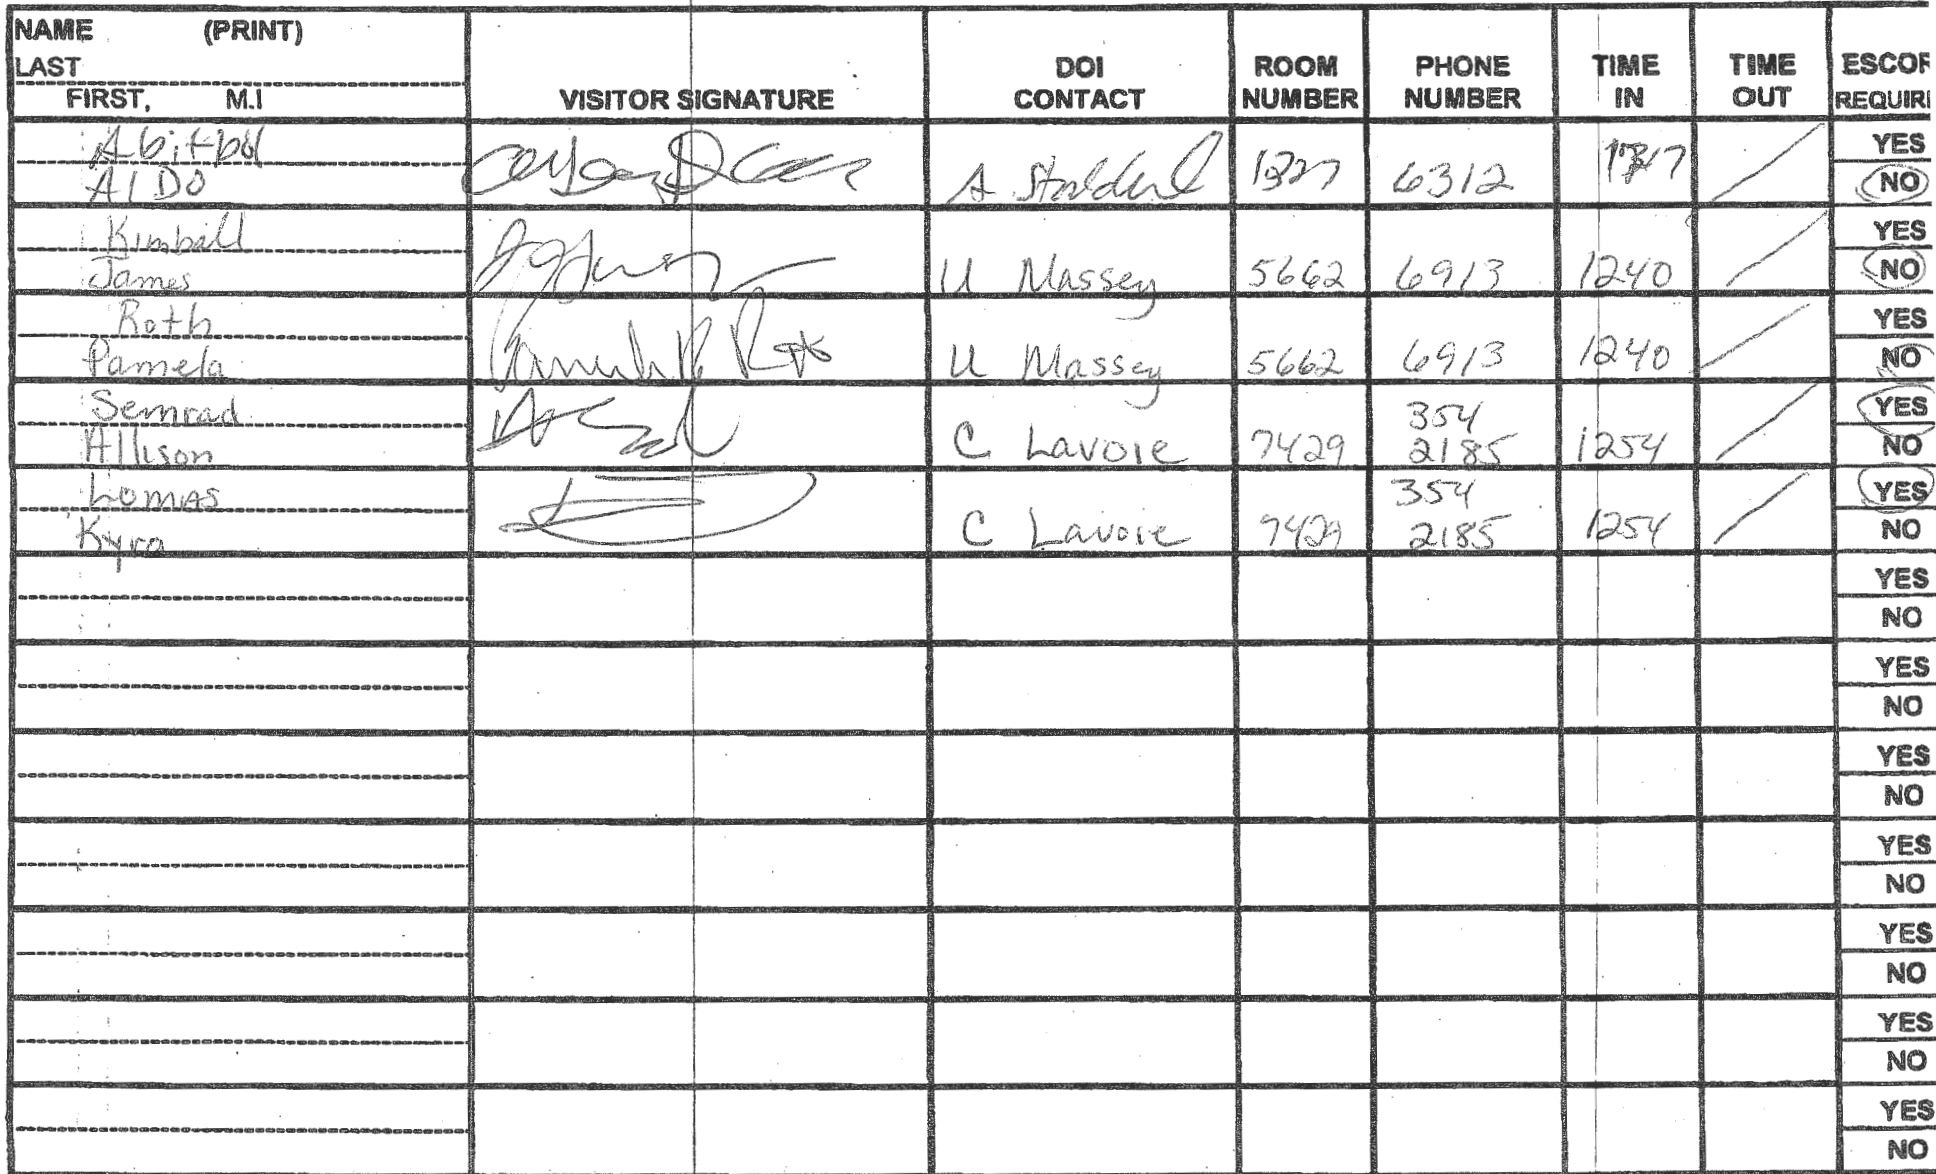 NAME (PRINT)
LAST
FIRST, M.I
VISITOR SIGNATURE
DOI
CONTACT
ROOM
NUMBER
PHONE
NUMBER
TIME
IN
TIME
OUT
ESCOR
REQUIRI
Abitbol
ALDO
A 6312
YES
NO
Kimball
James
U Massey 5662 6913 1240
YES
NO
Roth
Pamela
U Massey 5662 6913 1240
YES
NO
Semrad
Allison
C Lavoie 7429 354
2185 1254
YES
NO
Lomas
Kyra
C Lavoie 7429 354
2185 1254
YES
NO
YES
NO
YES
NO
YES
NO
YES
NO
YES
NO
YES
NO
YES
NO